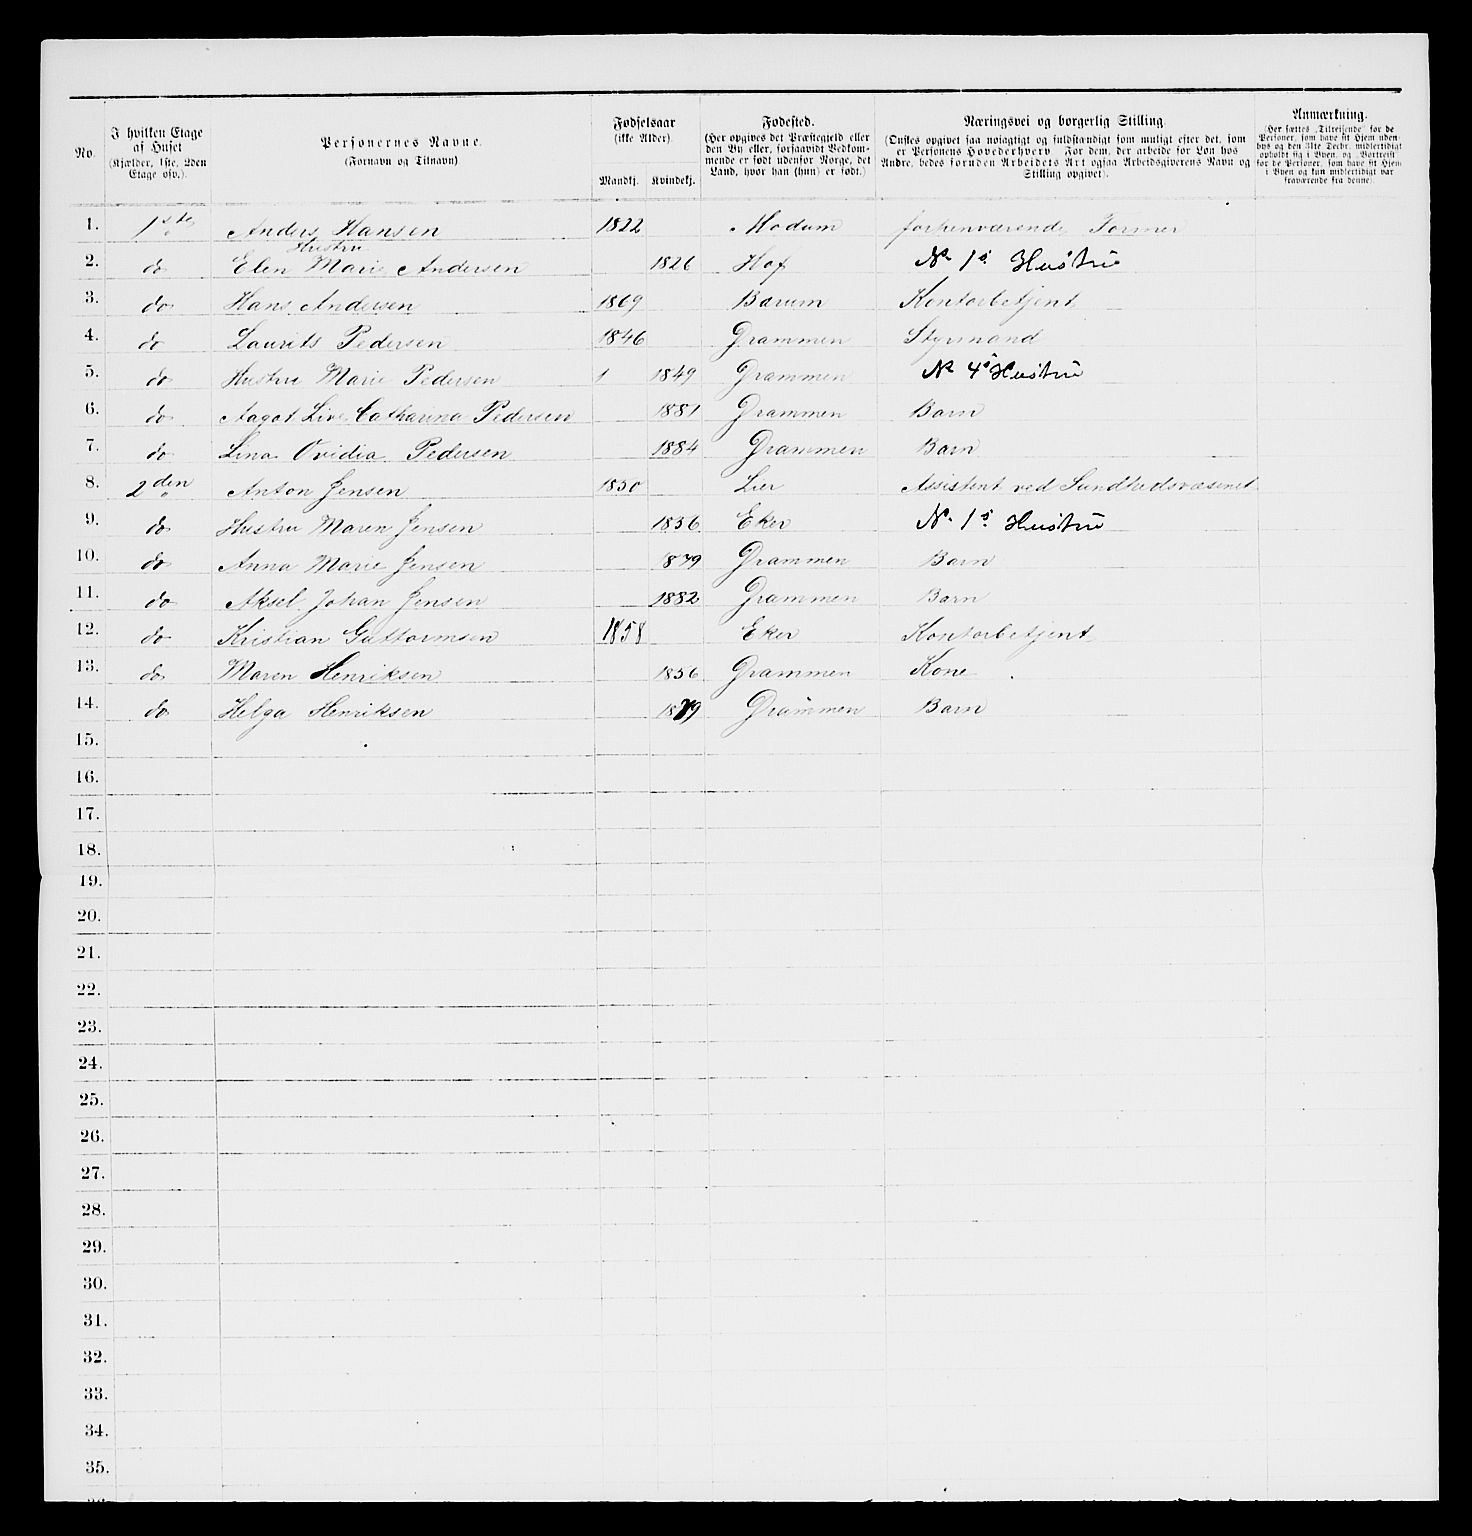 No.
I hvilken Etage
af Huset
(Kjælder, 1ste, 2den
Etage osv.).
Personernes Navne.
(Fornavn og Tilnavn)
Fødselsaar
(ikke Alder)
Mandkj.
Kvindekj.
Fødested.
(Her opgives det Præstegjeld eller
den By eller, forsaavidt Vedkom-
mende er født udenfor Norge, det
Land, hvor han (hun) er født.)
Næringsvei og borgerlig Stilling.
(Ønskes opgivet saa nøiagtigt og fuldstændigt som muligt efter det, som
er Personens Hovederhverv. For dem, der arbeide for Løn hos
Andre, bedes foruden Arbeidets Art ogsaa Arbeidsgiverens Navn og
Stilling opgivet).
Anmærkning.
(Her sættes „Tilreisende" for de
Personer, som have sit Hjem uden-
bys og den 31te Decbr. midlertidigt
opholdt sig i Byen, og „Bortreist"
for de Personer, som have sit Hjem
i Byen og kun midlertidigt var
fraværende fra denne)
1. 1ste Anders Hansen 1822 Modum forhenværende Former
Hustru
2. do Elen Marie Andersen 1826 Hof No 1s Hustru
3. do Hans Andersen 1869 Barum Kontorbetjent
4. do Laurits Pedersen 1846 Drammen Styrmand
5. do Hustru Marie Pedersen 1 1849 Drammen No 4s Hustru
6. do Aagot Live Catharina Pedersen 1881 Drammen Barn
7. do Lina Ovidia Pedersen 1884 Drammen Barn
8. 2den Anton Jensen 1850 Lier Assistent ved Sundhedsvæsenet
9. do Hustru Maren Jensen 1856 Eker No. 1s Hustru
10. do Anna Marie Jensen 1879 Drammen Barn
11. do Aksel Johan Jensen 1882 Drammen Barn
12. do Kristian Guttormsen 1858 Eker Kontorbetjent
13. do Maren Henriksen 1856 Drammen Kone
14. do Helga Henriksen 1879 Drammen Barn
15.
16.
17.
18.
19.
20.
21.
22.
23.
24.
25.
26.
27.
28.
29.
30.
31.
32.
33.
34.
35.